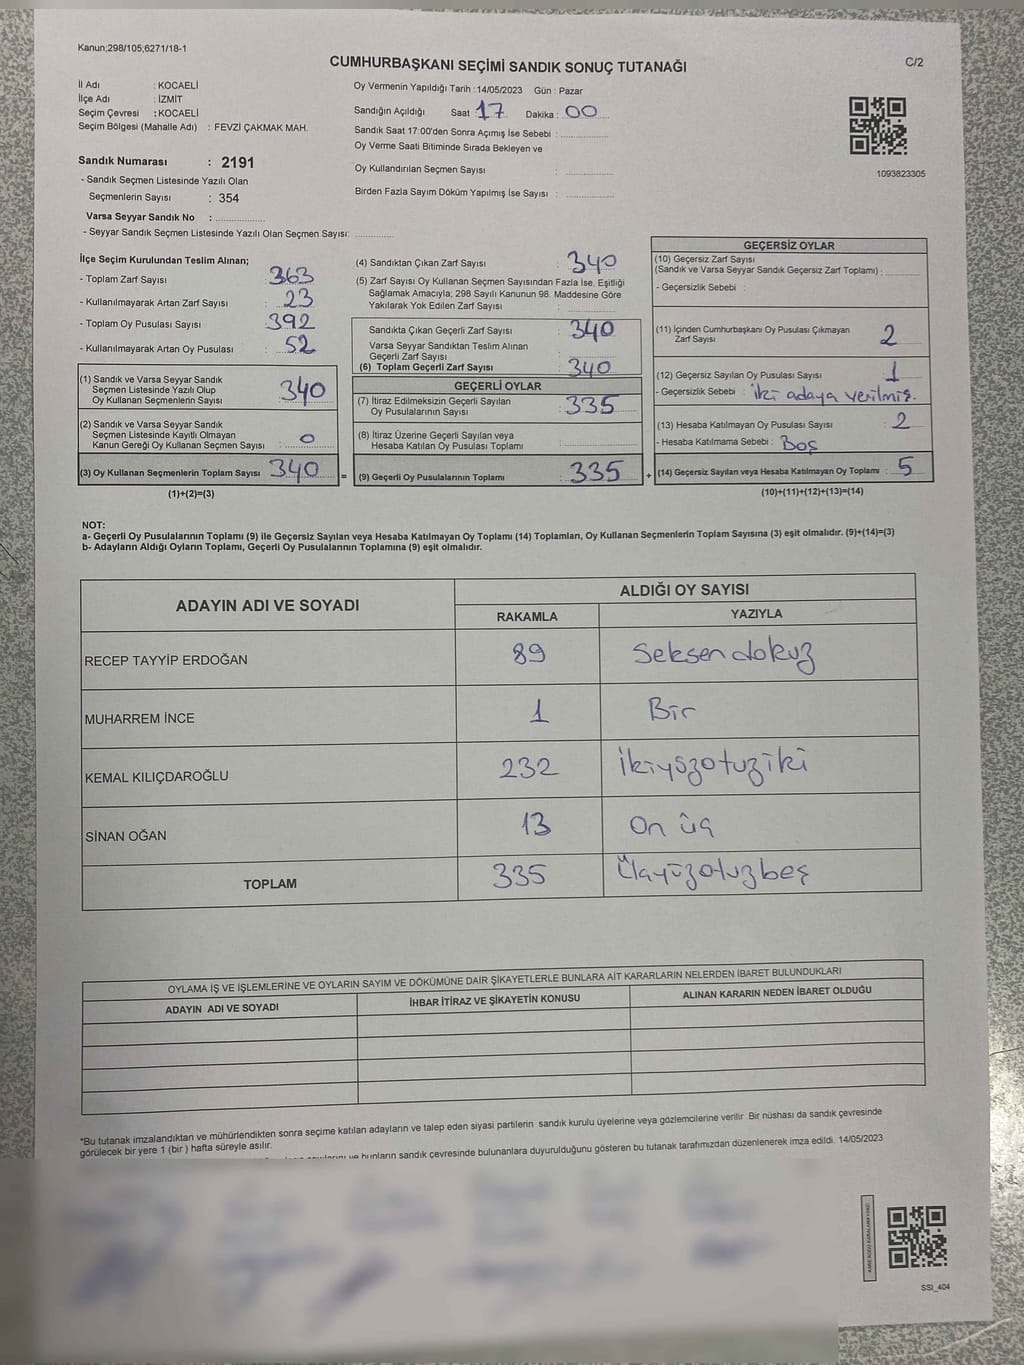 Kanun;298/105;6271/18-1
C/2
CUMHURBAŞKANI SEÇİMİ SANDIK SONUÇ TUTANAĞI
İl Adı : KOCAELİ
İlçe Adı : İZMİT
Seçim Çevresi : KOCAELİ
Seçim Bölgesi (Mahalle Adı) : FEVZİ ÇAKMAK MAH.
Sandık Numarası : 2191
- Sandık Seçmen Listesinde Yazılı Olan
Seçmenlerin Sayısı : 354
Varsa Seyyar Sandık No :
- Seyyar Sandık Seçmen Listesinde Yazılı Olan Seçmen Sayısı:
Oy Vermenin Yapıldığı Tarih :14/05/2023 Gün : Pazar
Sandığın Açıldığı Saat 17 Dakika : 00
Sandık Saat 17:00'den Sonra Açımış İse Sebebi :
Oy Verme Saati Bitiminde Sırada Bekleyen ve
Oy Kullandırılan Seçmen Sayısı :
Birden Fazla Sayım Döküm Yapılmış İse Sayısı :
1093823305
İlçe Seçim Kurulundan Teslim Alınan;
- Toplam Zarf Sayısı : 363
- Kullanılmayarak Artan Zarf Sayısı : 23
- Toplam Oy Pusulası Sayısı : 392
- Kullanılmayarak Artan Oy Pusulası : 52
(1) Sandık ve Varsa Seyyar Sandık
Seçmen Listesinde Yazılı Olup
Oy Kullanan Seçmenlerin Sayısı : 340
(2) Sandık ve Varsa Seyyar Sandık
Seçmen Listesinde Kayıtlı Olmayan
Kanun Gereği Oy Kullanan Seçmen Sayısı : 0
(3) Oy Kullanan Seçmenlerin Toplam Sayısı : 340 =
(1)+(2)=(3)
(4) Sandıktan Çıkan Zarf Sayısı : 340
(5) Zarf Sayısı Oy Kullanan Seçmen Sayısından Fazla İse, Eşitliği
Sağlamak Amacıyla; 298 Sayılı Kanunun 98. Maddesine Göre
Yakılarak Yok Edilen Zarf Sayısı :
Sandıkta Çıkan Geçerli Zarf Sayısı : 340
Varsa Seyyar Sandıktan Teslim Alınan
Geçerli Zarf Sayısı :
(6) Toplam Geçerli Zarf Sayısı : 340
GEÇERLİ OYLAR
(7) İtiraz Edilmeksizin Geçerli Sayılan
Oy Pusulalarının Sayısı : 335
(8) İtiraz Üzerine Geçerli Sayılan veya
Hesaba Katılan Oy Pusulası Toplamı :
(9) Geçerli Oy Pusulalarının Toplamı : 335 +
GEÇERSİZ OYLAR
(10) Geçersiz Zarf Sayısı
(Sandık ve Varsa Seyyar Sandık Geçersiz Zarf Toplamı) :
- Geçersizlik Sebebi :
(11) İçinden Cumhurbaşkanı Oy Pusulası Çıkmayan
Zarf Sayısı : 2
(12) Geçersiz Sayılan Oy Pusulası Sayısı : 1
- Geçersizlik Sebebi : İki adaya verilmiş.
(13) Hesaba Katılmayan Oy Pusulası Sayısı : 2
- Hesaba Katılmama Sebebi : Boş
(14) Geçersiz Sayılan veya Hesaba Katılmayan Oy Toplamı : 5
(10)+(11)+(12)+(13)=(14)
NOT:
a- Geçerli Oy Pusulalarının Toplamı (9) ile Geçersiz Sayılan veya Hesaba Katılmayan Oy Toplamı (14) Toplamları, Oy Kullanan Seçmenlerin Toplam Sayısına (3) eşit olmalıdır. (9)+(14)=(3)
b- Adayların Aldığı Oyların Toplamı, Geçerli Oy Pusulalarının Toplamına (9) eşit olmalıdır.
ADAYIN ADI VE SOYADI
ALDIĞI OY SAYISI
RAKAMLA YAZIYLA
RECEP TAYYİP ERDOĞAN 89 Seksen dokuz
MUHARREM İNCE 1 Bir
KEMAL KILIÇDAROĞLU 232 İkiyüzotuziki
SİNAN OĞAN 13 On üç
TOPLAM 335 Üçyüzotuzbeş
OYLAMA İŞ VE İŞLEMLERİNE VE OYLARIN SAYIM VE DÖKÜMÜNE DAİR ŞİKAYETLERLE BUNLARA AİT KARARLARIN NELERDEN İBARET BULUNDUKLARI
ADAYIN ADI VE SOYADI İHBAR İTİRAZ VE ŞİKAYETİN KONUSU ALINAN KARARIN NEDEN İBARET OLDUĞU
*Bu tutanak imzalandıktan ve mühürlendikten sonra seçime katılan adayların ve talep eden siyasi partilerin sandık kurulu üyelerine veya gözlemcilerine verilir Bir nüshası da sandık çevresinde
görülecek bir yere 1 (bir ) hafta süreyle asılır.
ve bunların sandık çevresinde bulunanlara duyurulduğunu gösteren bu tutanak tarafımızdan düzenlenerek imza edildi. 14/05/2023
SSI_404